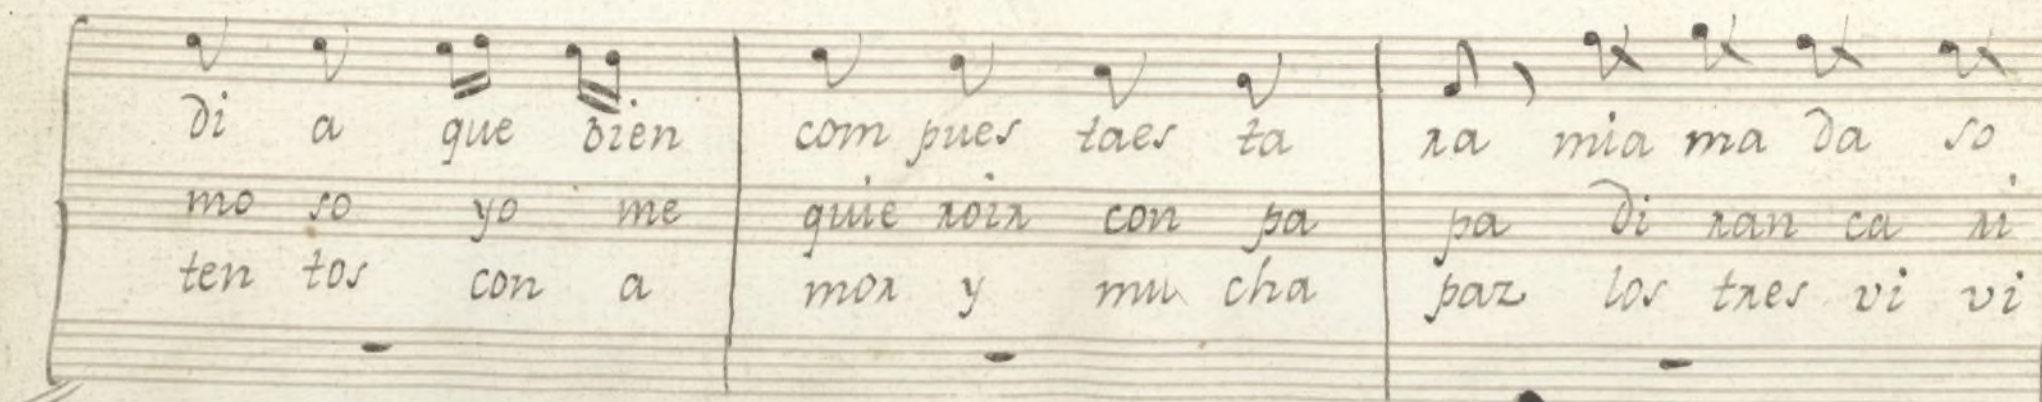 di a que bien com pues taes ta ra mia ma da so
mo so yo me quie roir con pa pa di ran ca ri
ten tos con a mor y mu cha paz los tres vi vi